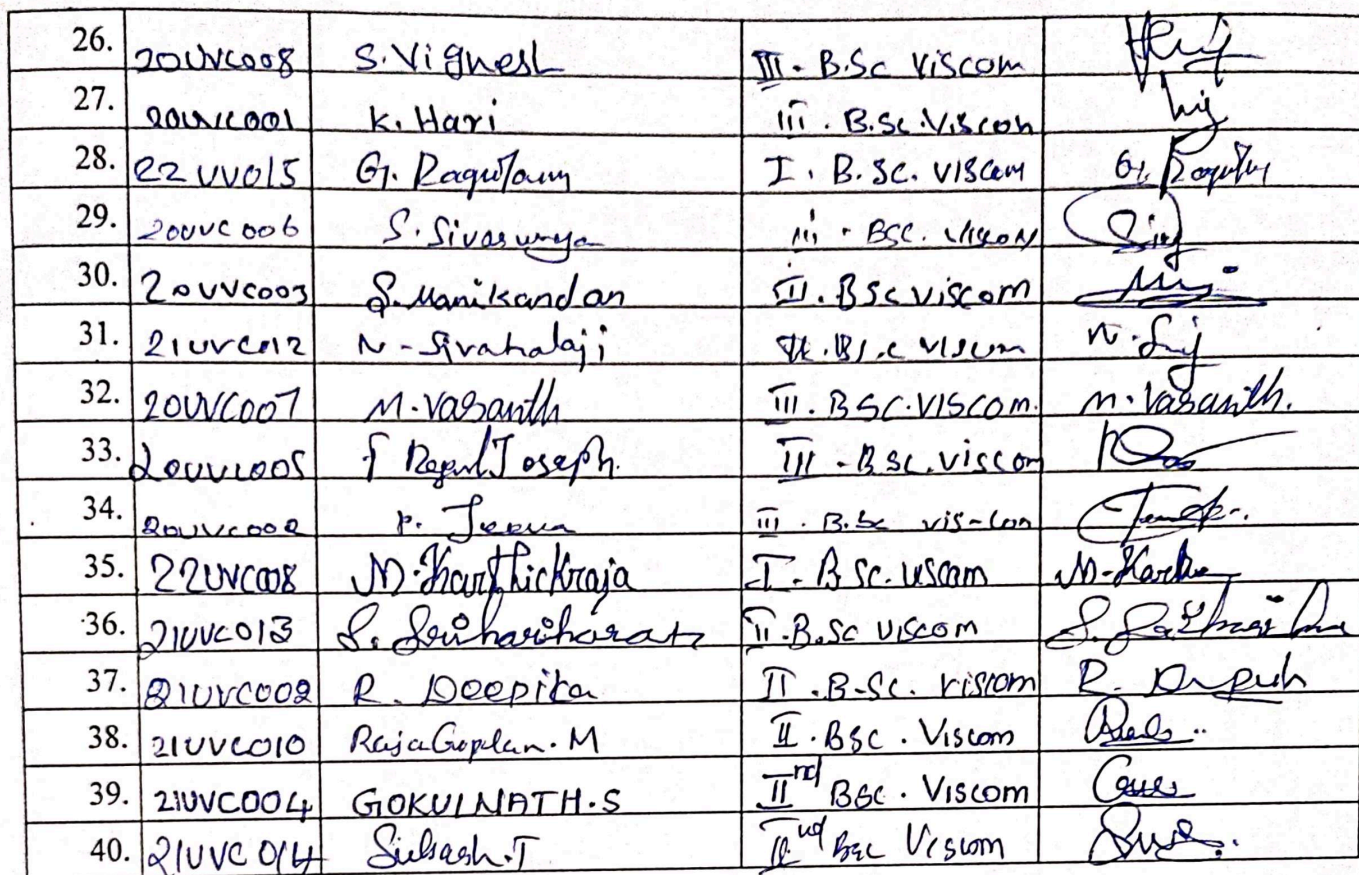 26. 20UVC008 S. Vignesh III - B.Sc Viscom
27. 20UVC001 K. Hari iii . B.Sc. Viscon
28. 22UV015 G. I. B.Sc. Viscom G.
29. 20UVC006 S. Sivasurya iii - BSC. Viscon
30. 20UVC003 S. Manikandan III. BSc viscom
31. 21UVC012 N - Sivabalaji II. BS.c viscom N.
32. 20UVC007 M. Vasanth III. BSC. VISCOM. M. Vasanth.
33. 20UVC005 Joseph. III - BSC. Viscom
34. 20UVC002 P. Jeeva iii . B.Sc vis-com
35. 22UVC008 M. Karthickraja I - BSc. viscom M. Karthi
36. 21UVC013 S. Srihariharan II. B.Sc viscom S.
37. 21UVC002 R. Deepika II . B.Sc. Viscom R.
38. 21UVC010 RajaGoplan. M II. BSC . Viscom
39. 21UVC004 GOKULNATH.S IInd BSC . Viscom
40. 21UVC014 Subash.T IInd BSc Viscom